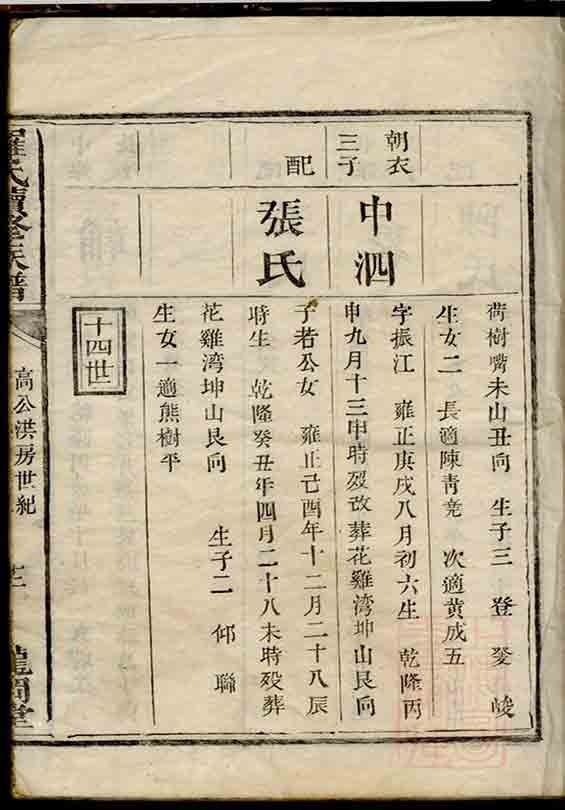 朝衣
三子
中泗
配
張氏
荷樹嘴未山丑向 生子三 登 發 峻
生女二 長適陳青亮 次適黃成五
字振江 雍正庚戌八月初六生 乾隆丙
申九月十三申時歿改葬花雞湾坤山艮向
子若公女 雍正己酉年十二月二十八辰
時生 乾隆癸丑年四月二十八未時歿葬
花雞湾坤山艮向 生子二 仰 聯
生女一適熊樹平
十四世
羅氏續修族譜
高公洪房世紀